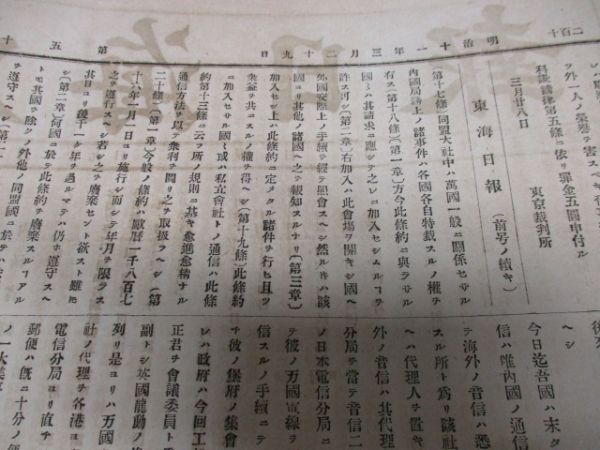 二百十
明治十一年三月二十九日
第五十
科讒謗律第五條ニ依リ罰金五圓申付ル
三月廿八日 東京裁判所
東海日報 (前号ノ續キ)
第十七條 同盟大社中ハ萬國一般ニ關係セサル
内國局務上ノ諸事件ハ各國各自特裁スルノ權ヲ
有ス(第十八條(第一章)方今此條約ニ與ラサル
國ニハ其請求ニ應シテ之レニ加入セシムルヿヲ
許ス可シ(第二章)右加入ハ此會場ヲ開キシ國ヘ
外國交際上ノ手續ヲ經テ照會スヘシ然ル片ハ該
國ヨリ其他ノ諸國ヘ之ヲ報知スルナリ(第三章)
加入ノ上ハ此條約ニ定メタル諸件ヲ行ヒ且ツ
衆益ヲ共ニスルノ權ヲ得ヘシ(第十九條)此條約
ニ加入セサル國ト或ハ私立會社トノ通信ハ此條
約第十三條ニ云フ所ノ規則ニ基キ愈進愈精ナル
通信方法ヲ以テ衆利ヲ開リ之ヲ取扱フヘシ(第
二十條(第一章)今般ノ條約ハ歐曆一千八百七
十六年一月一日ヨリ施行シ而シテ年月ヲ限ラス
之ヲ遵行スヘシ若シ之ヲ廢棄セント欲スト雖モ
其日ヨリ後十一ケ年ヲ過ルマテハ仍ホ遵守スヘ
シ(第二章)何國ニテモ此條約ヲ廢棄スルヿアル
トモ其國ヲ除クノ外他ノ同盟國ニ於テハ
ヲ遵守スヘシ(第二十
ヘシ
今日迄吾國ハ末タ
信ハ唯内國ノ通信
テ海外ノ音信ハ悉
スル所ト爲リ該社
ヘハ代理人ヲ置キ
外ノ音信ハ其代理
分局ヲ當テ音信ニ
ノ日本電信分局ニ
テ彼ノ万國電線ヲ
信スルノ手續ニテ
テ彼ノ堡府ノ集會
レハ政府ハ今回工
正君ヲ會議委員ト
副トシ英國龍動ノ
列リ是ヨリハ万國
社ノ代理ヲ各港ヨ
電信分局ヨリ直チ
郵便ハ既ニ十分ノ